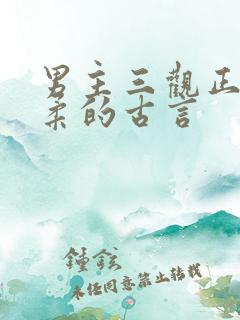 男主三觀正
柔的古言
鍾鉉
未经同意禁止转载